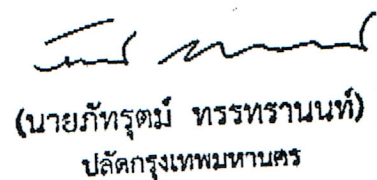 (นายภัทรุตม์ ทรรทรานนท์)
ปลัดกรุงเทพมหานคร